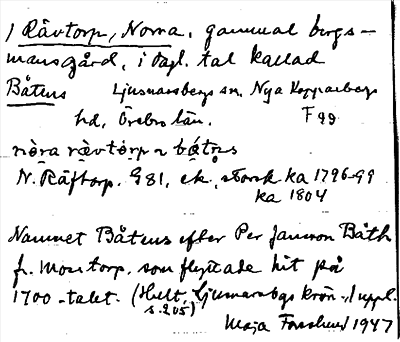 1 Rävtorp, Norra, gammal bergs-
mansgård, i dagl. tal kallad
Båtens Ljusnarsbergs sn, Nya Kopparbergs
hd, Örebro län. F 99
nòra rä̀vtòrp ~ bǻtns
N. Räftorp. G 81, ek, storsk ka 1796-99
ka 1804
Namnet Båtens efter Per Jansson Båth
fr. Mostorp, som flyttade hit på
1700-talet. (Hult, Ljusnarsbgs krön., I uppl.
s. 205)
Maja Forslund 1947